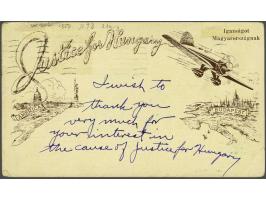 Justice for Hungary
Igazságot
Magyarországnak
I wish to
thank you
very much for
your interest in
the cause of Justice for Hungary
BUDAPEST